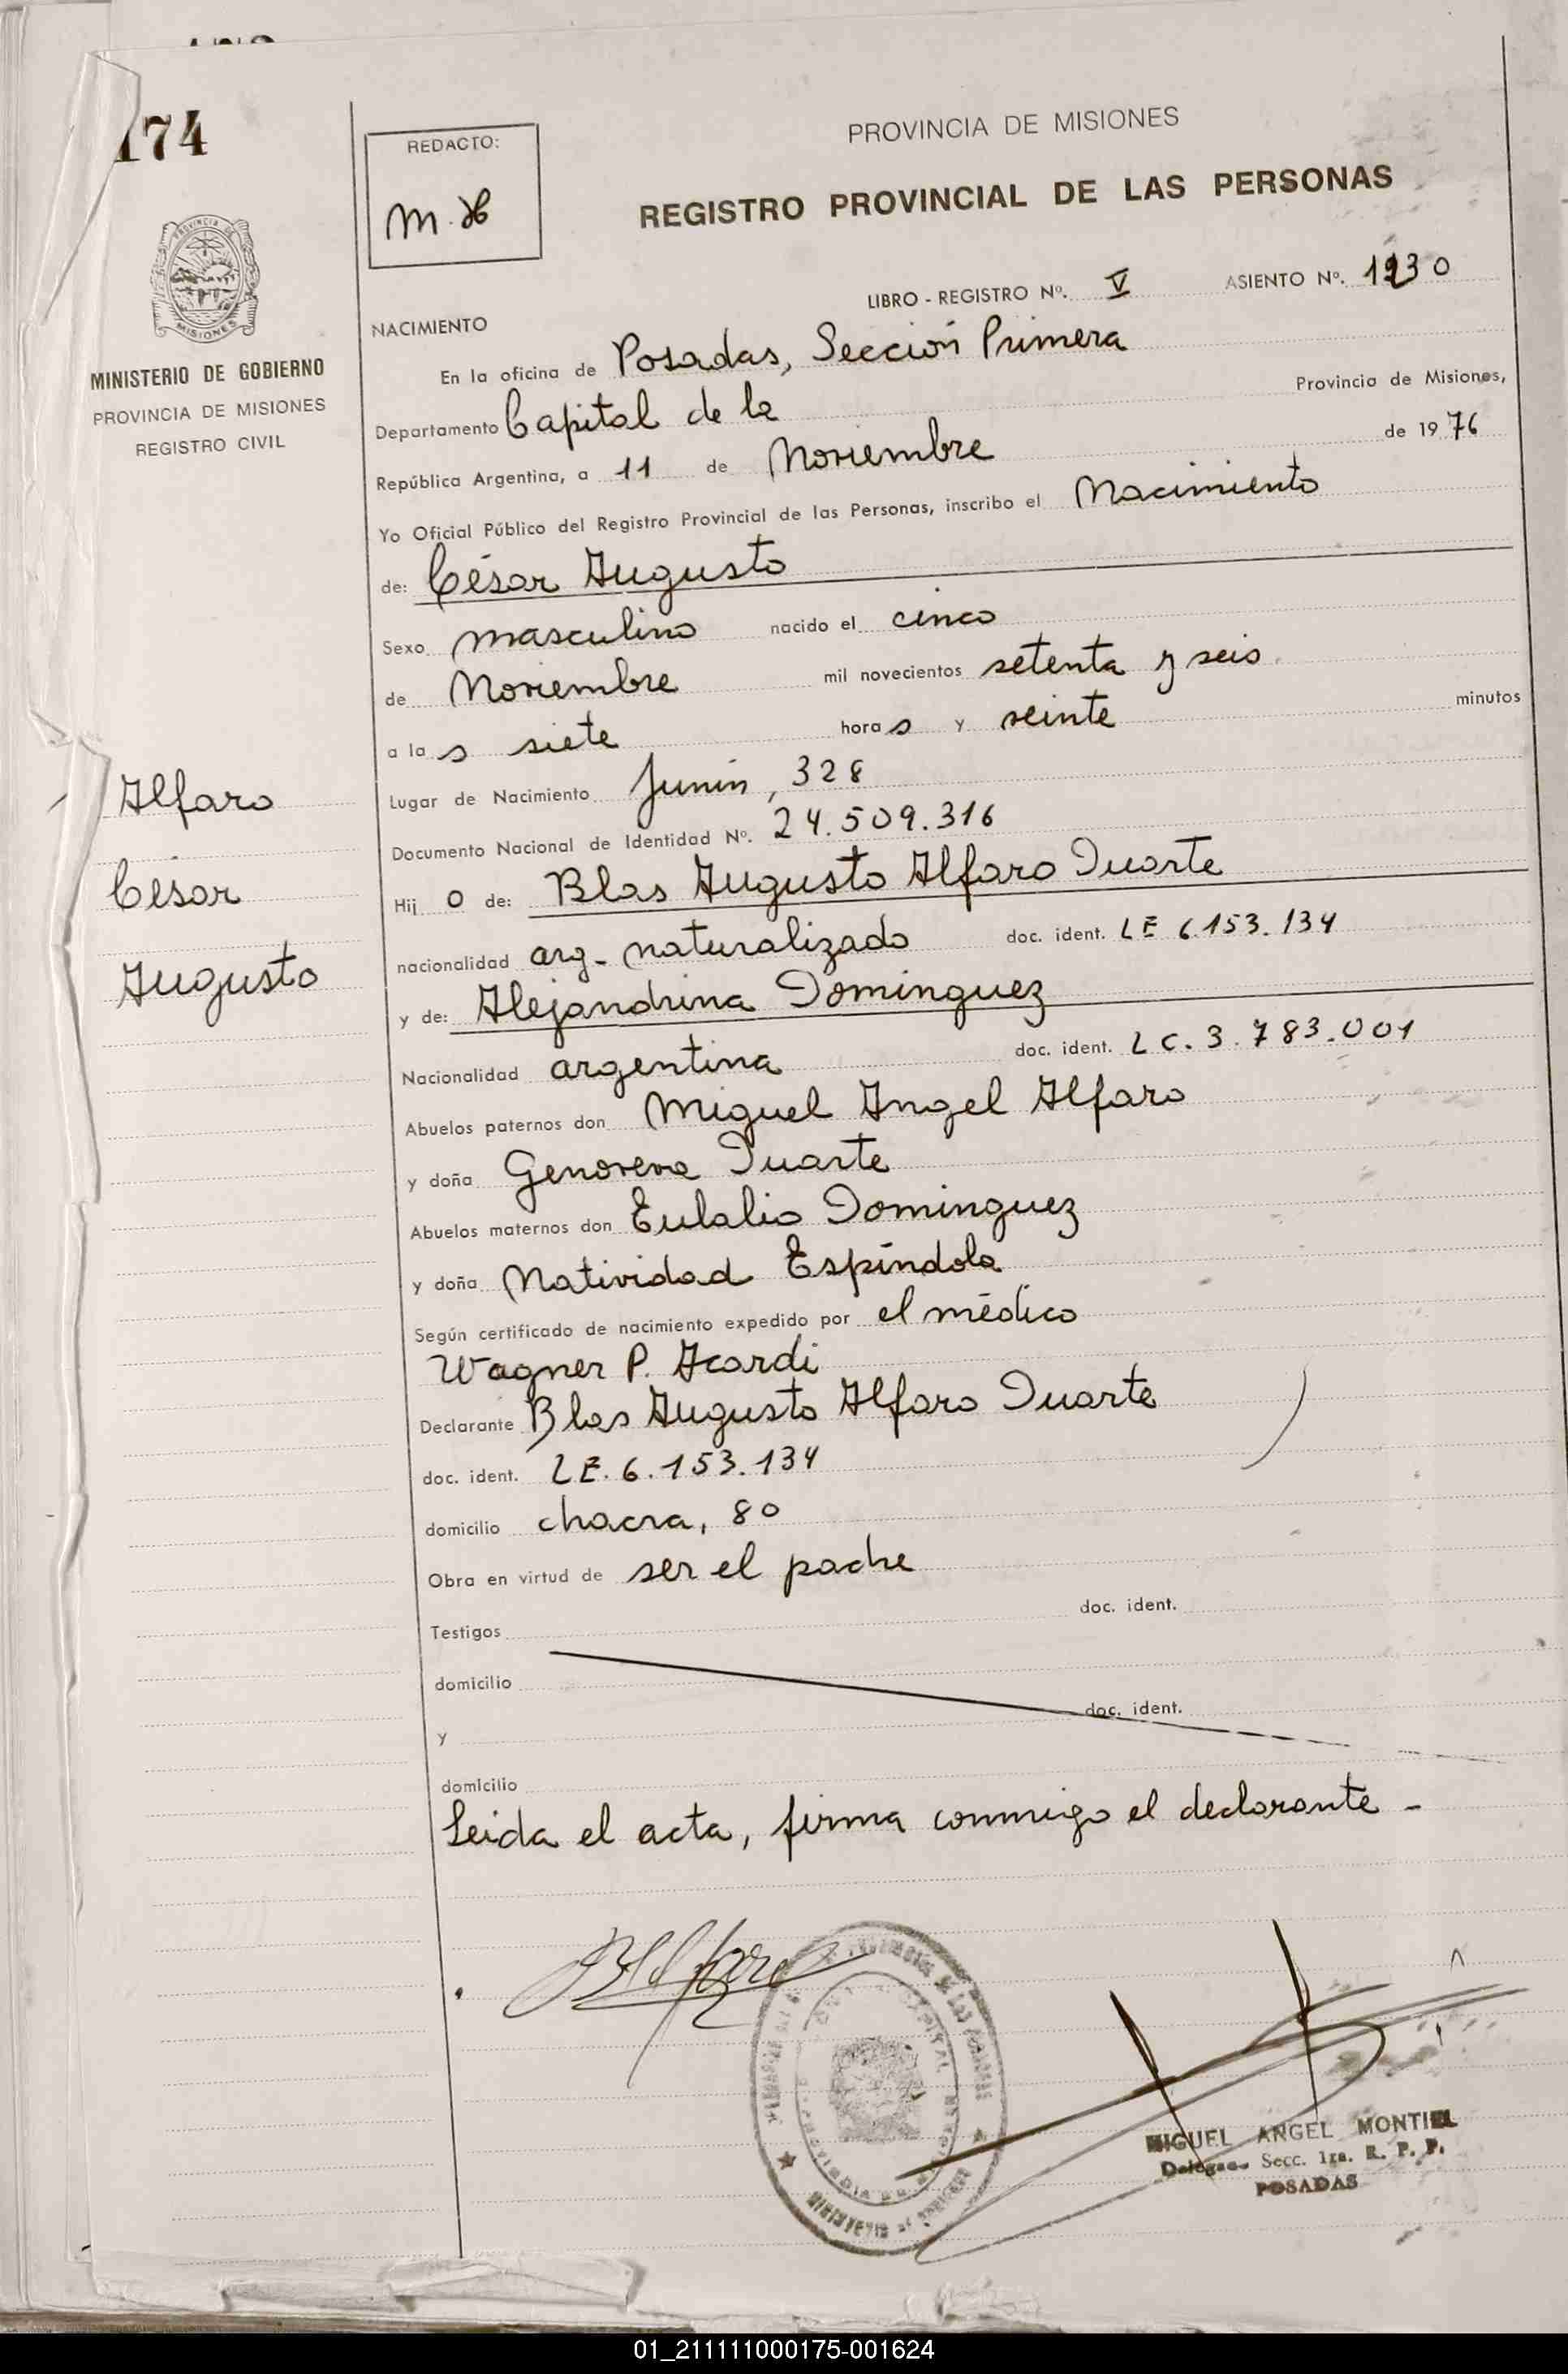 174
REDACTO:
M.H
PROVINCIA DE MISIONES
REGISTRO PROVINCIAL DE LAS PERSONAS
LIBRO - REGISTRO Nº. V ASIENTO Nº. 1230
PROVINCIA DE
MISIONES
MINISTERIO DE GOBIERNO
PROVINCIA DE MISIONES
REGISTRO CIVIL
NACIMIENTO
En la oficina de Posadas, Sección Primera
Departamento Capital de la Provincia de Misiones,
República Argentina, a 11 de Noviembre de 1976
Yo Oficial Público del Registro Provincial de las Personas, inscribo el Nacimiento
de: César Augusto
Sexo masculino nacido el cinco
de Noviembre mil novecientos setenta y seis
a las siete horas y veinte minutos
Lugar de Nacimiento Junín, 328
Documento Nacional de Identidad Nº. 24.509.316
Hijo de: Blas Augusto Alfaro Duarte
nacionalidad arg- naturalizado doc. ident. LE 6.153.134
y de: Alejandrina Dominguez
Nacionalidad argentina doc. ident. LC. 3.783.001
Abuelos paternos don Miguel Angel Alfaro
y doña Genoveva Duarte
Abuelos maternos don Eulalio Dominguez
y doña Natividad Espíndola
Según certificado de nacimiento expedido por el médico
Wagner P. Acardi
Declarante Blas Augusto Alfaro Duarte
doc. ident. LE. 6.153.134
domicilio chacra, 80
Obra en virtud de ser el padre
Testigos doc. ident.
domicilio
y doc. ident.
domicilio
Leida el acta, firma conmigo el declarante -
Alfaro
César
Augusto
BAlfaro
MIGUEL ANGEL MONTIEL
Delegado Secc. 1ra. R. P. P.
POSADAS
01_211111000175-001624